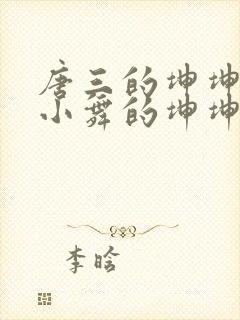 唐三的坤坤
小舞的坤坤
李晗